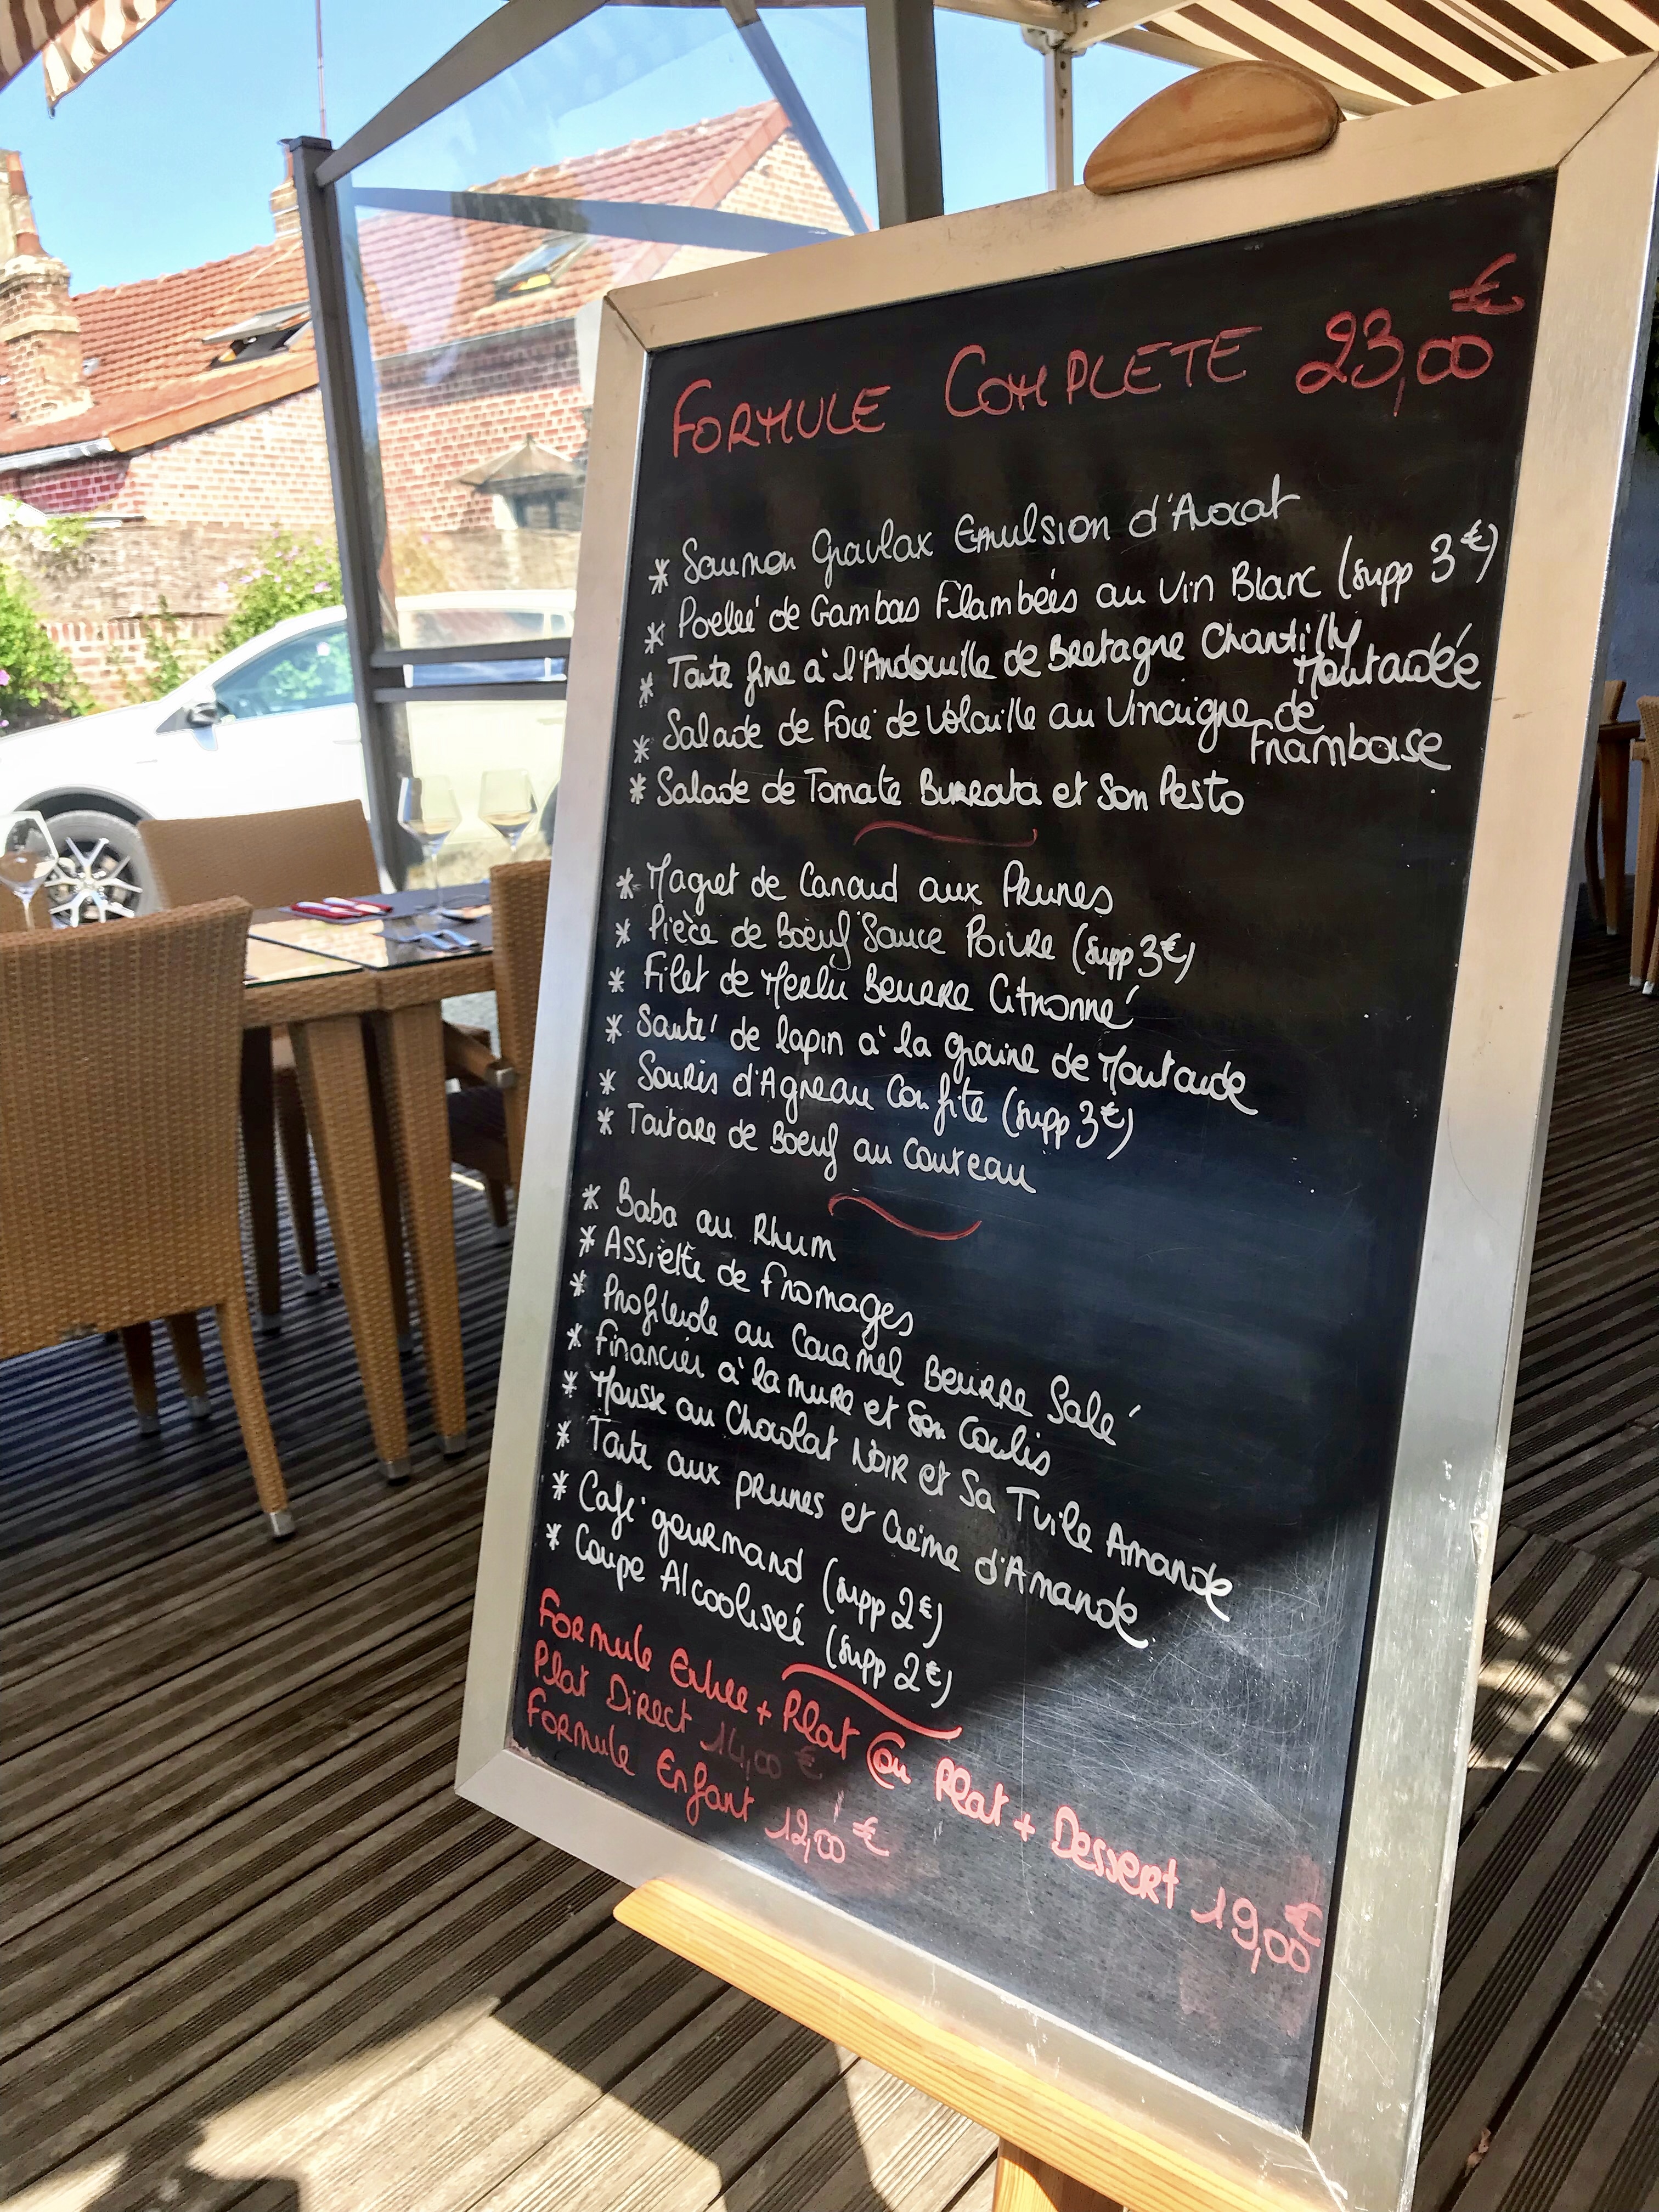 FORMULE COMPLETE 23,00€
* Saumon Gravlax Emulsion d'Avocat
* Poelée de Gambas Flambées au Vin Blanc (supp 3€)
* Tarte fine à l'Andouille de Bretagne Chantilly
Moutardée
* Salade de Foie de Volaille au Vinaigre de
Framboise
* Salade de Tomate Burrata et Son Pesto
* Magret de Canard aux Prunes
* Pièce de Boeuf Sauce Poivre (supp 3€)
* Filet de Merlu Beurre Citronné
* Sauté de lapin à la graine de Moutarde
* Souris d'Agneau Confite (supp 3€)
* Tartare de Boeuf au Couteau
* Baba au Rhum
* Assiette de Fromages
* Profiterole au Caramel Beurre Salé
* Financier à la mure et Son Coulis
* Mousse au Chocolat Noir et Sa Tuile Amande
* Tarte aux prunes et Crème d'Amande
* Café gourmand (supp 2€)
* Coupe Alcoolisée (supp 2€)
Formule Entree + Plat ou Plat + Dessert 19,00€
Plat Direct 14,00 €
Formule Enfant 12,00€